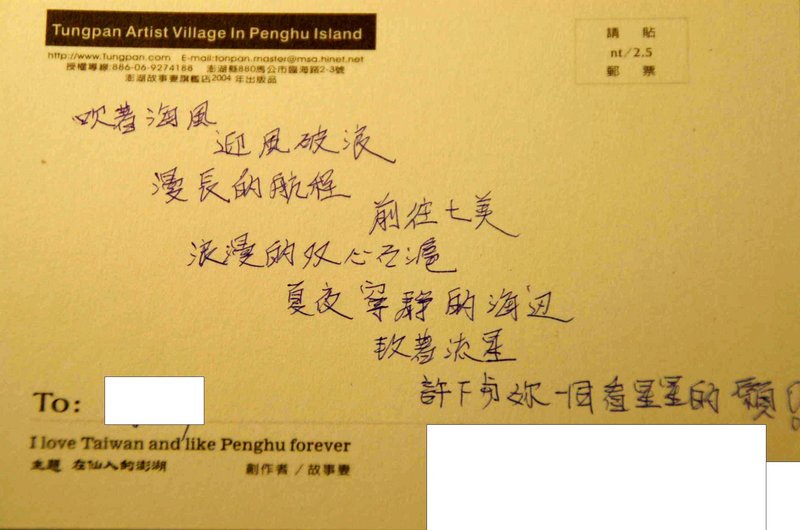 Tungpan Artist Village In Penghu Island
http://www.Tungpan.com E-mail:tonpan.master@msa.hinet.net
授權專線:886-06-9274188 澎湖縣880馬公市臨海路2-3號
澎湖故事妻旗艦店2004年出版品
請貼
nt/2.5
郵票
吹著海風
迎風破浪
漫長的航程
前往七美
浪漫的双心石滬
夏夜寧靜的海边
軟著流星
許下与妳一同看星星的願
To:
I love Taiwan and like Penghu forever
主題 在仙人的澎湖
創作者/故事妻